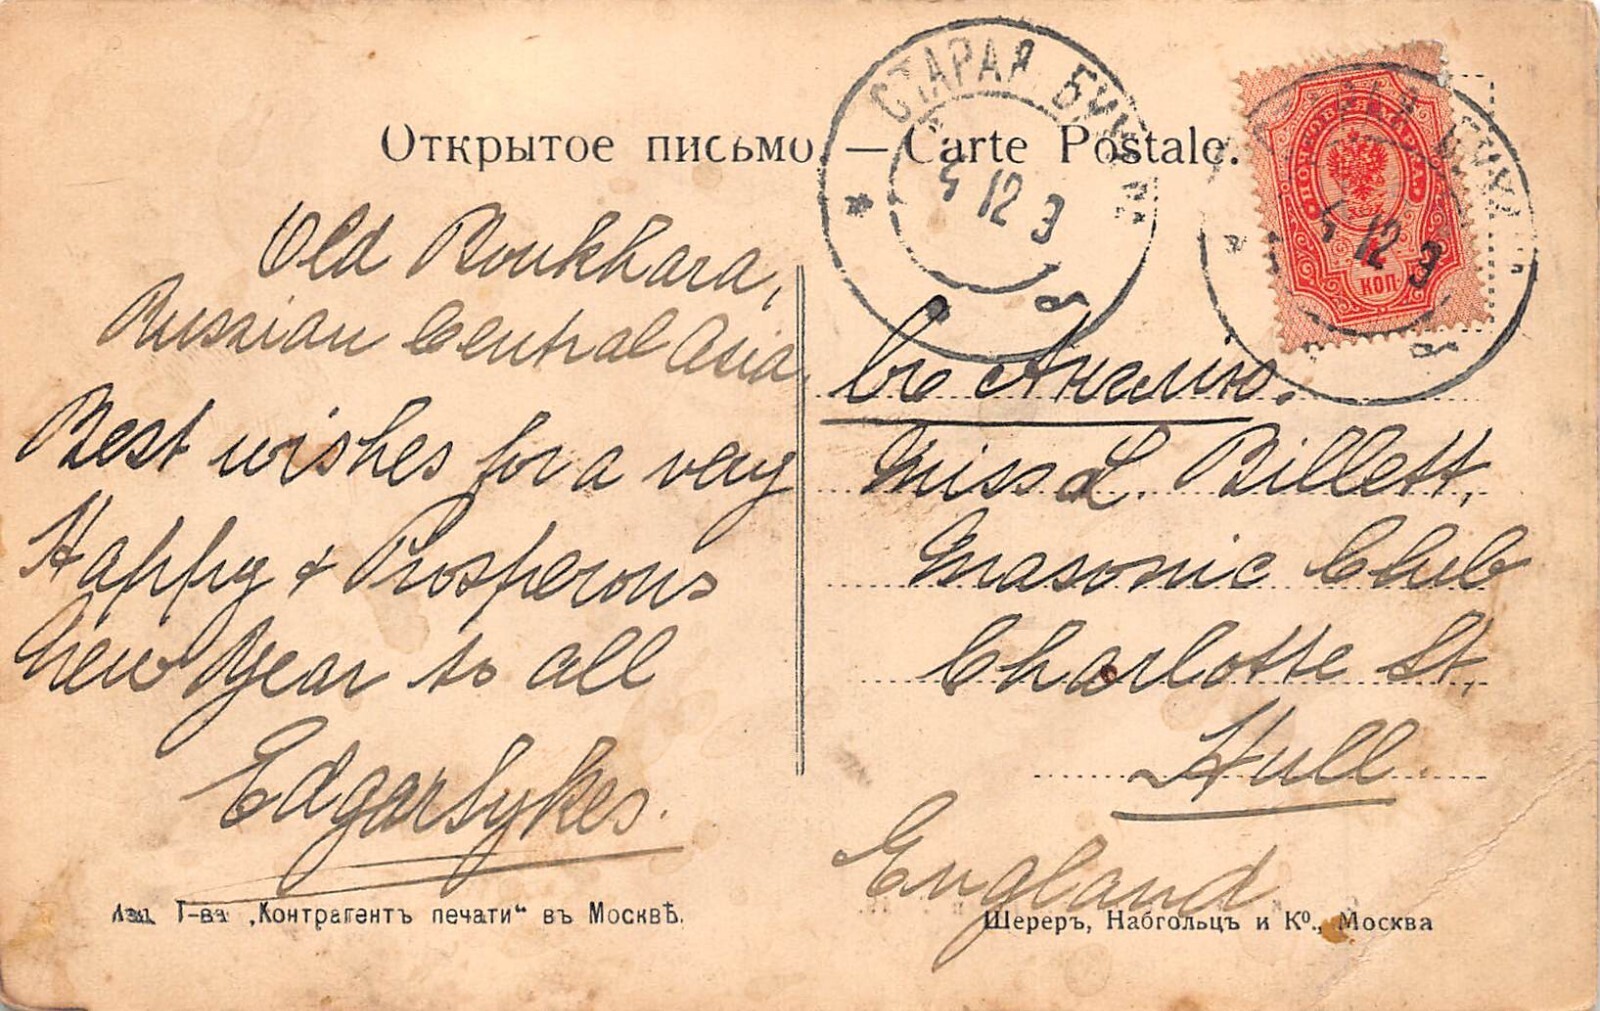 Открытое письмо — Carte Postale.
СТАРАЯ БУХАР.
5 12 3
б
5 12 3
КОП.
б
Old Boukhara,
Russian Central Asia,
Best wishes for a very
Happy & Prosperous
New Year to all
Edgar Sykes.
Въ Англию.
Miss L. Billett,
Masonic Club
Charlotte St,
Hull
England
Изд. Т-ва „Контрагентъ печати“ въ Москвѣ.
Шереръ, Набгольцъ и Ко., Москва